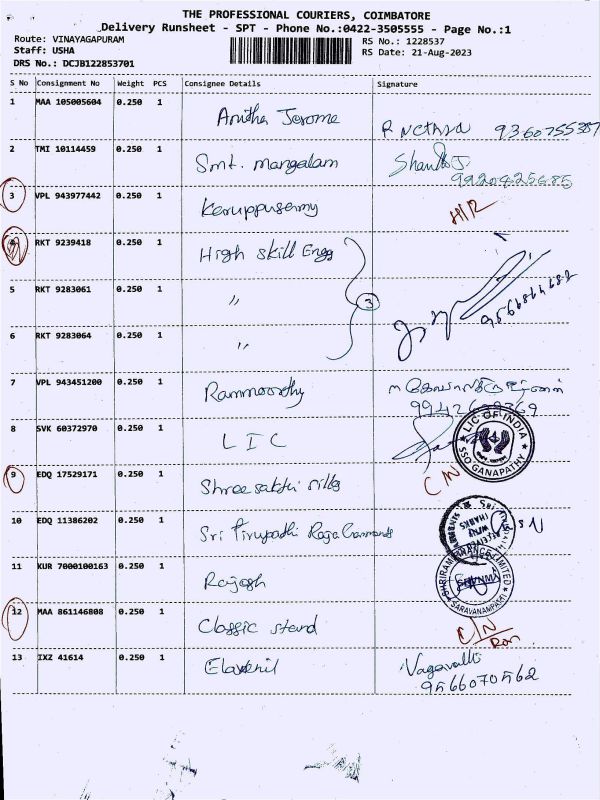 THE PROFESSIONAL COURIERS, COIMBATORE
Delivery Runsheet - SPT - Phone No.:0422-3505555 - Page No.:1
Route: VINAYAGAPURAM
Staff: USHA
DRS No.: DCJB122853701
RS No.: 1228537
RS Date: 21-Aug-2023
S No Consignment No Weight PCS Consignee Details Signature
1 MAA 105005604 0.250 1 Anitha Jerome 9360755387
2 TMI 10114459 0.250 1 Smt. mangalam 9920425685
3 VPL 943977442 0.250 1 Karuppusamy
4 RKT 9239418 0.250 1 High skill Engg
5 RKT 9283061 0.250 1 " 3
6 RKT 9283064 0.250 1 "
7 VPL 943451200 0.250 1 Rammoorthy
8 SVK 60372970 0.250 1 LIC LIC OF INDIA SSO GANAPATHY
9 EDQ 17529171 0.250 1 Shree sakthi mills C/N
10 EDQ 11386202 0.250 1 Sri Tirupathi Raja RECEIVED WITH THANKS
11 KUR 7000100163 0.250 1 Rajesh LIMITED SARAVANAMPATTI
12 MAA 861146808 0.250 1 Classic stand C/N
13 IXZ 41614 0.250 1 9566070562